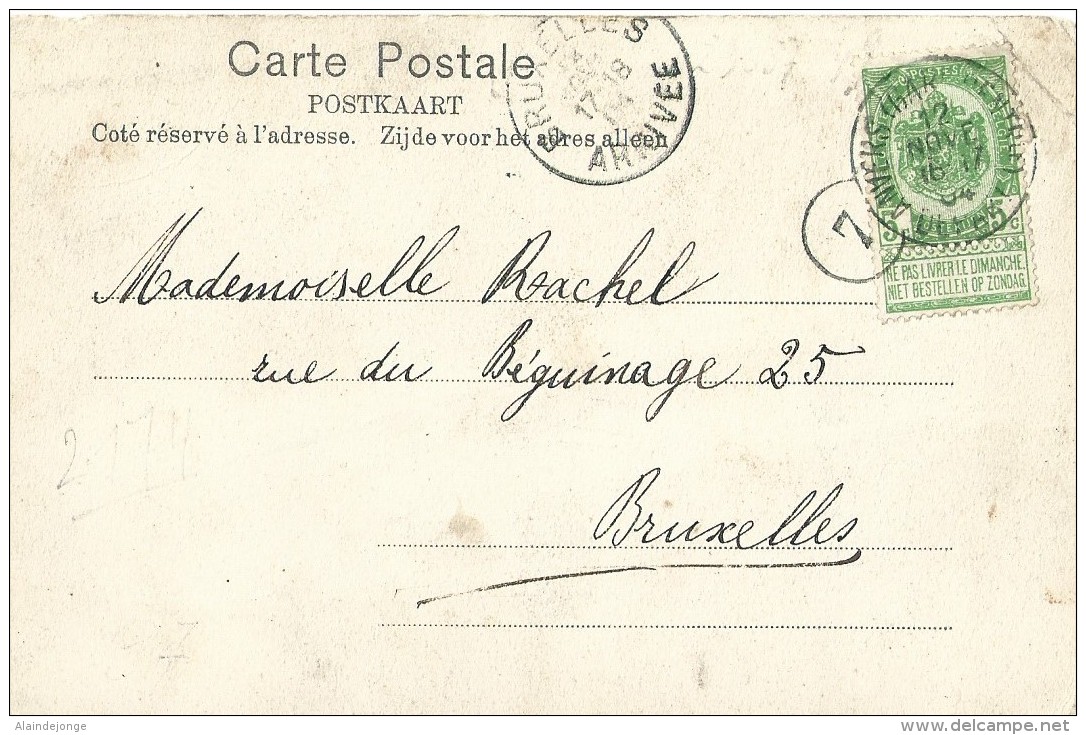 Carte Postale
POSTKAART
Coté réservé à l'adresse. Zijde voor het adres alleen
BRUXELLES
17-18
ARRIVEE
12
NOVE
16-17
04
7
5 5
NE PAS LIVRER LE DIMANCHE.
NIET BESTELLEN OP ZONDAG.
Mademoiselle Rachel
rue du Béguinage 25
Bruxelles
Alaindejonge
www.delcampe.net